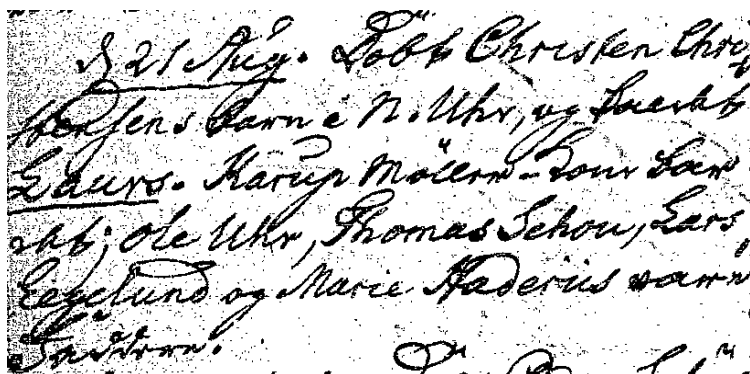 d 21 Aug. Döbt Christen Chri
stensens barn i N. Uhr, og kaldt
Laurs. Karup Möller-Kone bar
det; Ole Uhr, Thomas Schou, Lars
Eegelund og Marie Haderüs vare
Faddere.